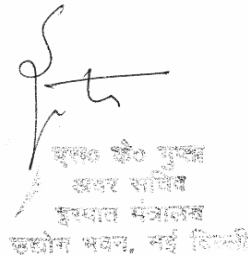 एस० के० गुप्ता
अवर सचिव
इस्पात मंत्रालय
उद्योग भवन, नई दिल्ली